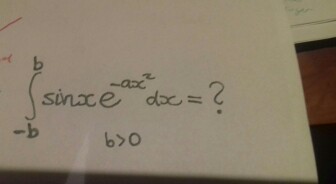 ∫_{-b}^{b} sinx e^{-ax²} dx = ?
b>0